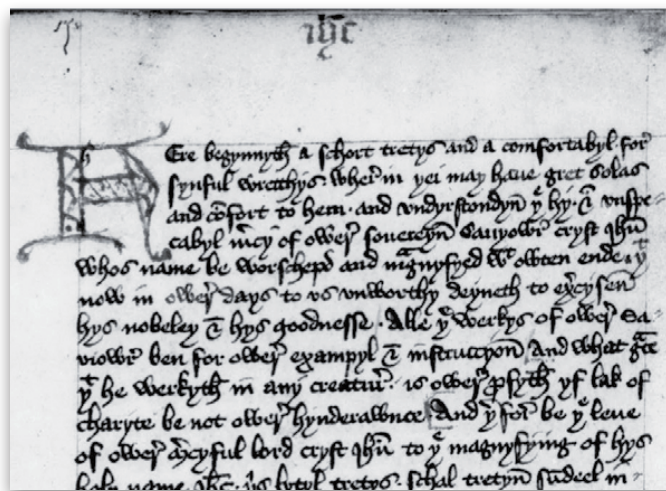 ihc
HEre begynnyth a schort tretys and a comfortabyl for
synful wrecchys wher in yei may haue gret solas
and cōfort to hem. and vndyrstondyn yᵉ hy & vnspe-
cabyl m̄cy of ower souereyn Sauyowr cryst Jhū
whos name be worschepd and magnyfyed wᵗ owten ende. yᵗ
now in ower days to vs vnworthy deyneth to excysen
hys nobeley & hys goodnesse. Alle yᵉ werkys of ower sa-
viowr ben for ower exampyl & instruccyon And what gᵃce
yᵗ he werkyth in any creatur. is ower pfyth yf lak of
charyte be not ower hynderawnce And yᵉrfor be yᵉ leue
of ower mcyful lord cryst Jhū to yᵉ magnyfying of hys
holy name. Jhc. yˢ lytyl tretys. schal tretyn sūdeel in